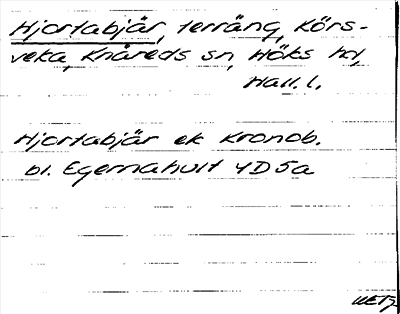 Hjortabjär, terräng, Körs-
veka, Knäreds sn, Höks hd,
Hall. l.
Hjortabjär ek Kronob.
bl. Egernahult 4D5a